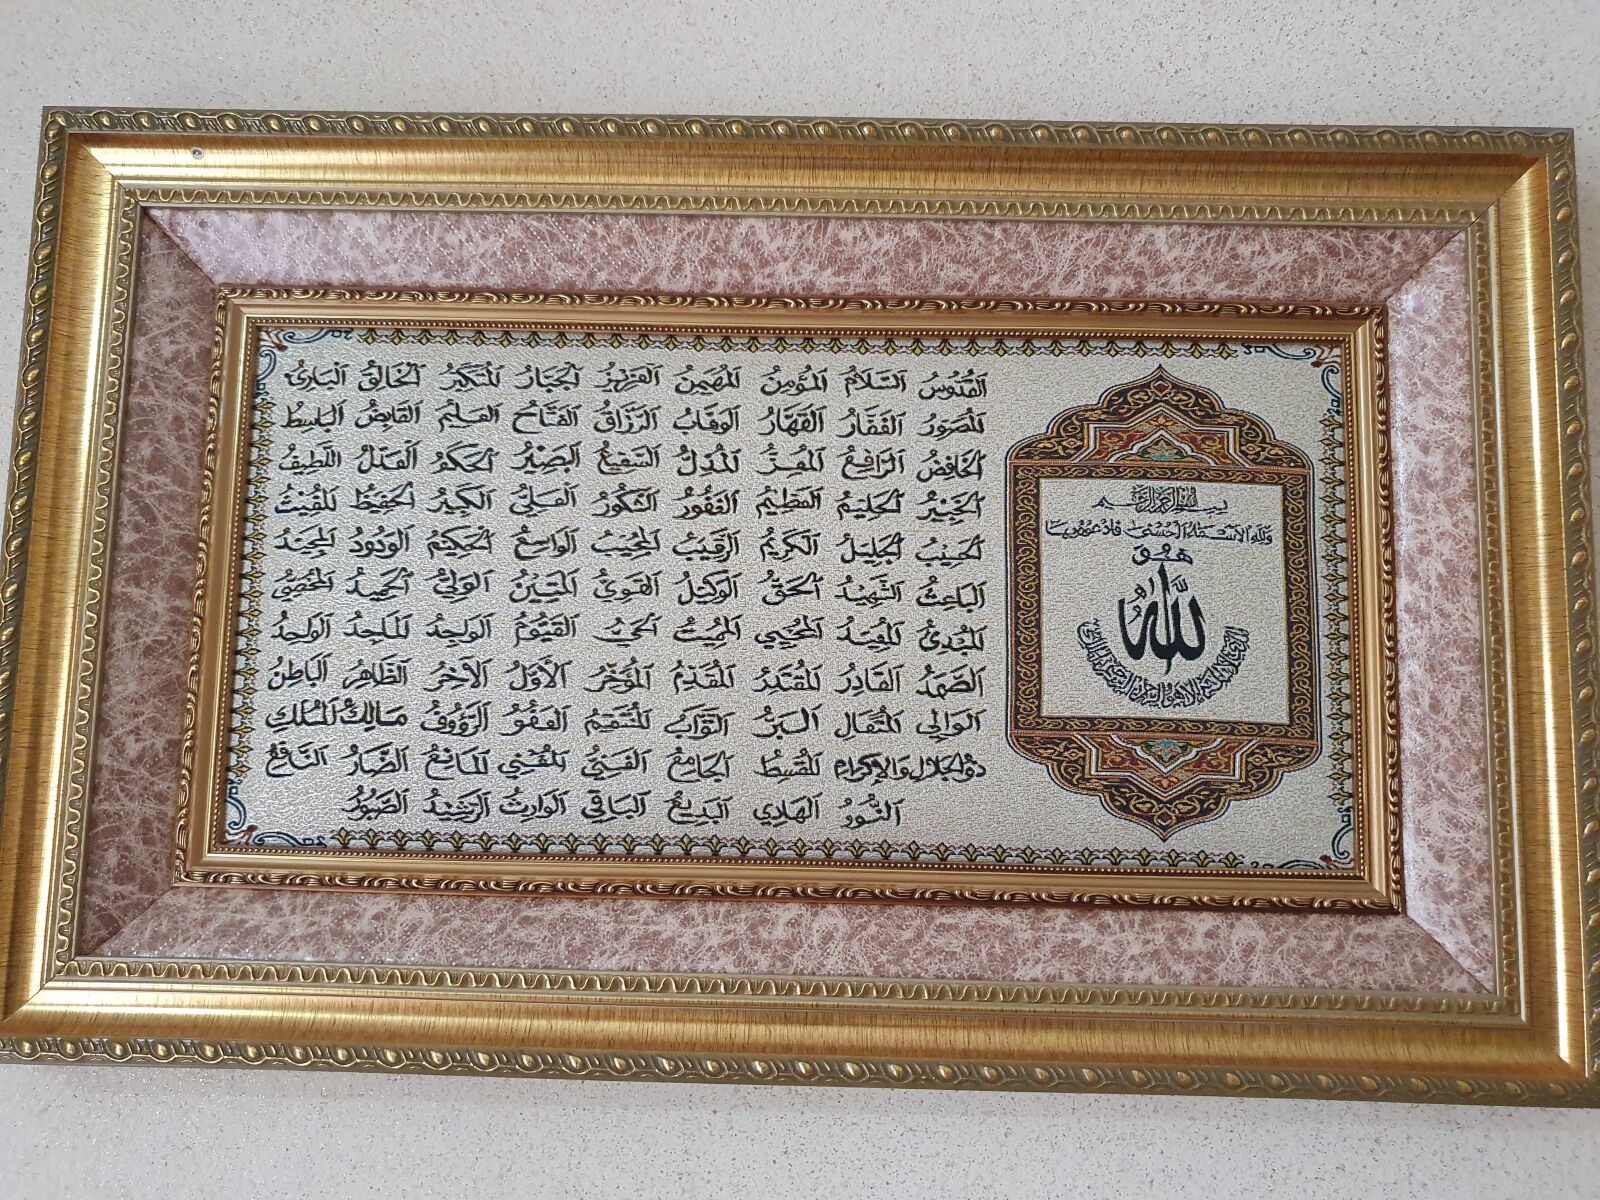 بسم الله الرحمن الرحيم
ولله الأسماء الحسنى فادعوه بها
هو
الله
القدوس السلام المؤمن المهيمن العزيز الجبار المتكبر الخالق البارئ
المصور الغفار القهار الوهاب الرزاق الفتاح العليم القابض الباسط
الخافض الرافع المعز المذل السميع البصير الحكم العدل اللطيف
الخبير الحليم العظيم الغفور الشكور العلي الكبير الحفيظ المقيت
الحسيب الجليل الكريم الرقيب المجيب الواسع الحكيم الودود المجيد
الباعث الشهيد الحق الوكيل القوي المتين الولي الحميد المحصي
المبدئ المعيد المحيي المميت الحي القيوم الواجد الماجد الواحد
الصمد القادر المقتدر المقدم المؤخر الأول الآخر الظاهر الباطن
الوالي المتعال البر التواب المنتقم العفو الرؤوف مالك الملك
ذو الجلال والإكرام المقسط الجامع الغني المغني المانع الضار النافع
النور الهادي البديع الباقي الوارث الرشيد الصبور